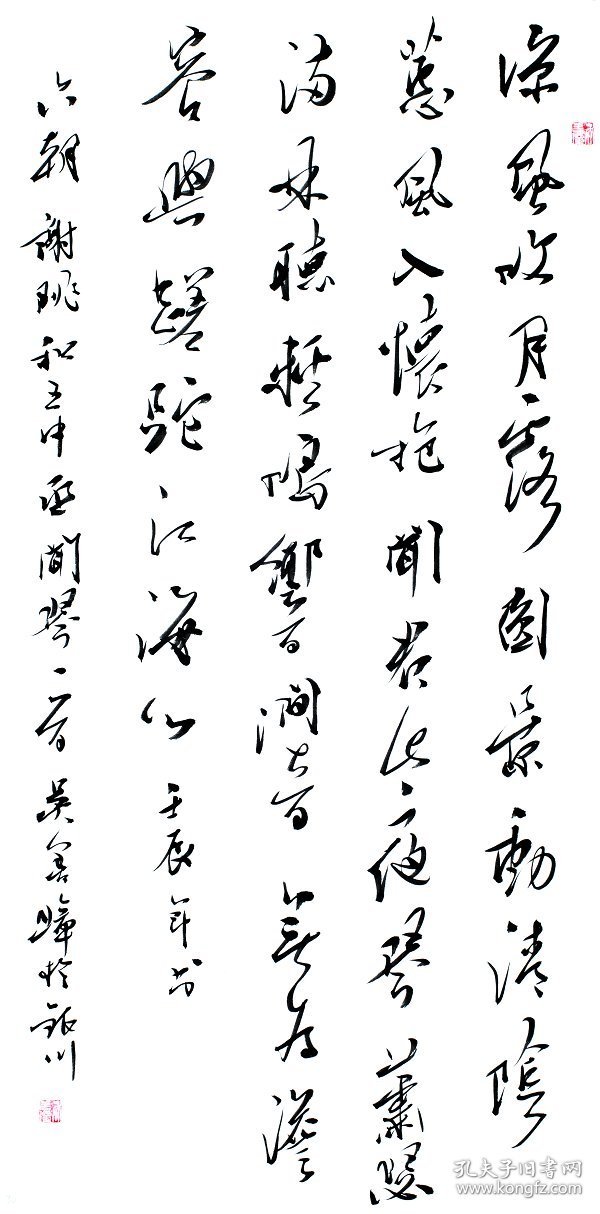 涼風吹月露圓景動清陰
蕙風入懷抱聞君此夜琴蕭瑟
滿林聽輕鳴響澗音無為澹
容與蹉跎江海心 壬辰年书
六朝 謝朓和王中丞聞琴一首 吴善璋於銀川
孔夫子旧书网
www.kongfz.com